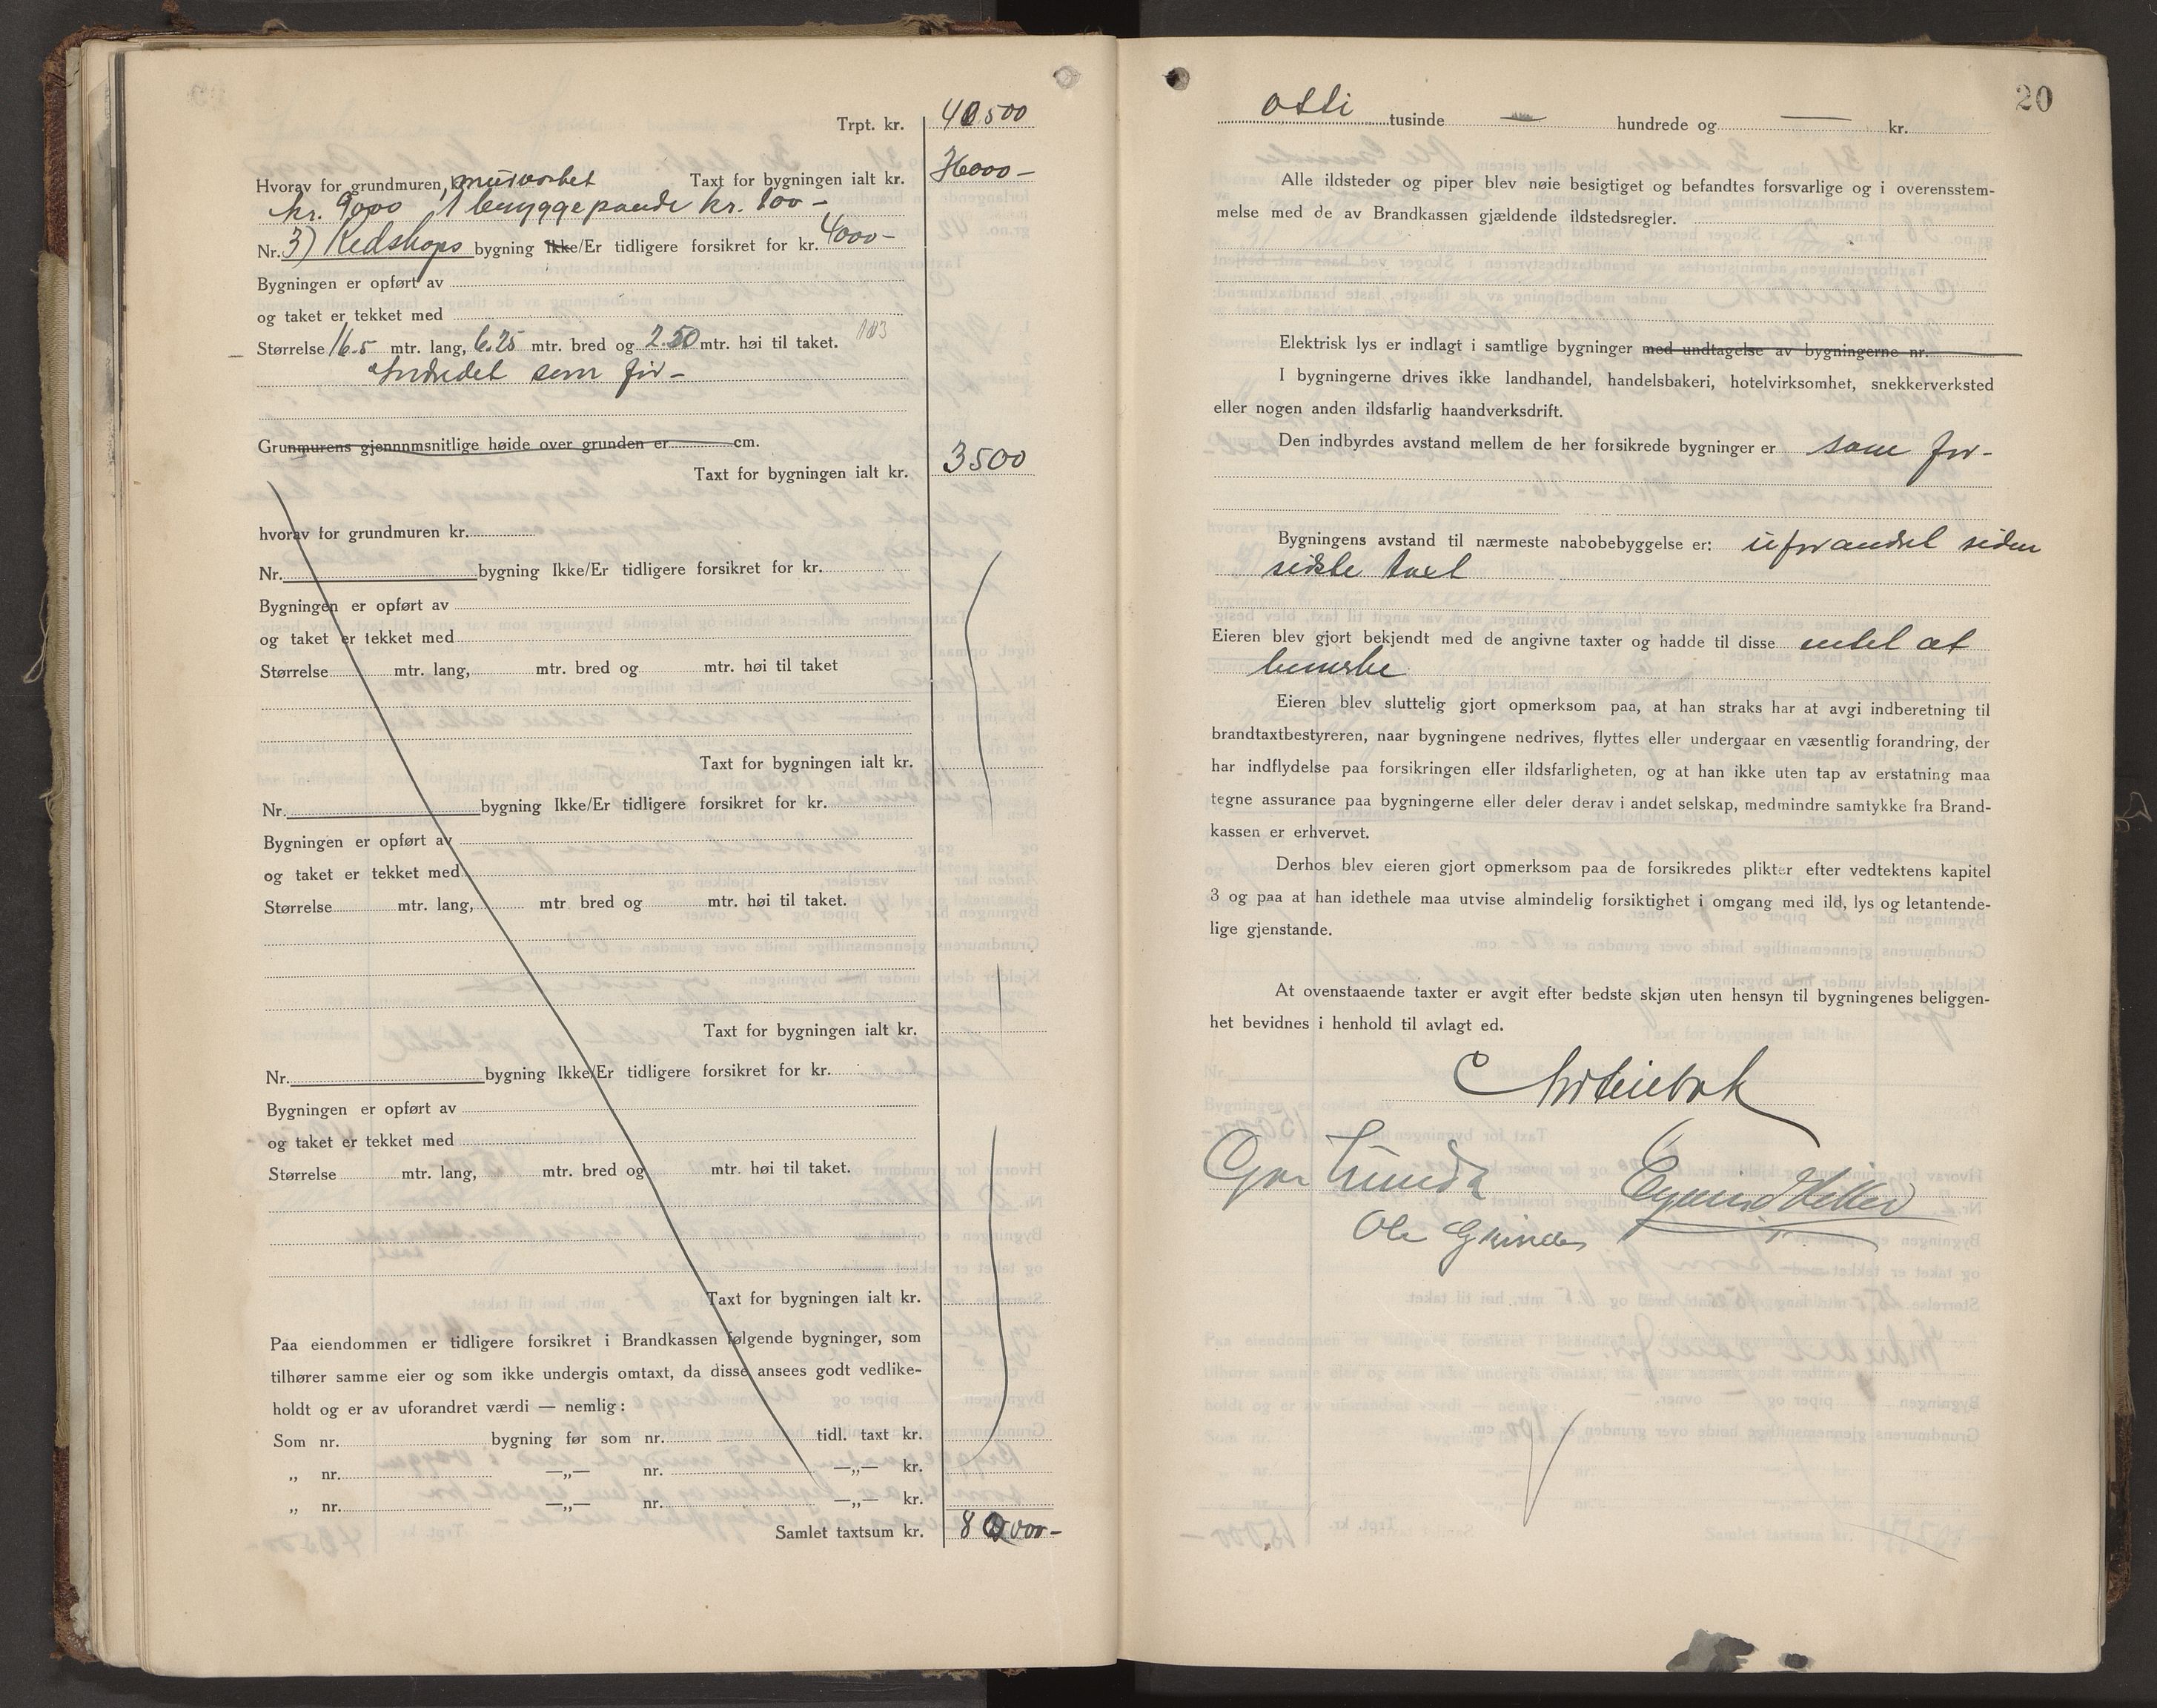 Trpt. kr. 40500
Hvorav for grundmuren, murarbet Taxt for bygningen ialt kr. 36000-
kr. 9000 1 bryggepande kr. 100-
Nr. 3) Redskaps bygning Ikke/Er tidligere forsikret for kr. 4000-
Bygningen er opført av
og taket er tekket med
Størrelse 16.5 mtr. lang, 6.25 mtr. bred og 2.50 mtr. høi til taket. 103
Indredet som før-
Grunmurens gjennnmsnitlige høide over grunden er cm.
Taxt for bygningen ialt kr. 3500
hvorav for grundmuren kr.
Nr. bygning Ikke/Er tidligere forsikret for kr.
Bygningen er opført av
og taket er tekket med
Størrelse mtr. lang, mtr. bred og mtr. høi til taket
Taxt for bygningen ialt kr.
Nr. bygning Ikke/Er tidligere forsikret for kr.
Bygningen er opført av
og taket er tekket med
Størrelse mtr. lang, mtr bred og mtr. høi til taket.
Taxt for bygningen ialt kr.
Nr. bygning Ikke/Er tidligere forsikret for kr.
Bygningen er opført av
og taket er tekket med
Størrelse mtr. lang, mtr. bred og mtr. høi til taket.
Taxt for bygningen ialt kr.
Paa eiendommen er tidligere forsikret i Brandkassen følgende bygninger, som
tilhører samme eier og som ikke undergis omtaxt, da disse ansees godt vedlike-
holdt og er av uforandret værdi — nemlig:
Som nr. bygning før som nr. tidl. taxt kr.
„ nr. —„— nr. —„— kr.
„ nr. —„— nr. —„— kr.
Samlet taxtsum kr. 80000-
20
otti tusinde — hundrede og — kr.
Alle ildsteder og piper blev nøie besigtiget og befandtes forsvarlige og i overensstem-
melse med de av Brandkassen gjældende ildstedsregler.
Elektrisk lys er indlagt i samtlige bygninger med undtagelse av bygningerne nr.
I bygningerne drives ikke landhandel, handelsbakeri, hotelvirksomhet, snekkerverksted
eller nogen anden ildsfarlig haandverksdrift.
Den indbyrdes avstand mellem de her forsikrede bygninger er som før-
Bygningens avstand til nærmeste nabobebyggelse er: uforandret siden
sidste taxt
Eieren blev gjort bekjendt med de angivne taxter og hadde til disse intet at
bemerke
Eieren blev sluttelig gjort opmerksom paa, at han straks har at avgi indberetning til
brandtaxtbestyreren, naar bygningene nedrives, flyttes eller undergaar en væsentlig forandring, der
har indflydelse paa forsikringen eller ildsfarligheten, og at han ikke uten tap av erstatning maa
tegne assurance paa bygningerne eller deler derav i andet selskap, medmindre samtykke fra Brand-
kassen er erhvervet.
Derhos blev eieren gjort opmerksom paa de forsikredes plikter efter vedtektens kapitel
3 og paa at han idethele maa utvise almindelig forsiktighet i omgang med ild, lys og letantende-
lige gjenstande.
At ovenstaaende taxter er avgit efter bedste skjøn uten hensyn til bygningenes beliggen-
het bevidnes i henhold til avlagt ed.
Ole